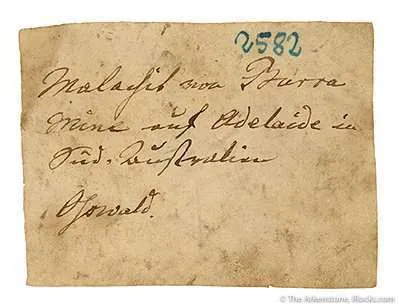 2582
Malachit von Burra
Mine auf Adelaide in
Süd-Australien
Oswald.
© The Arkenstone, iRocks.com